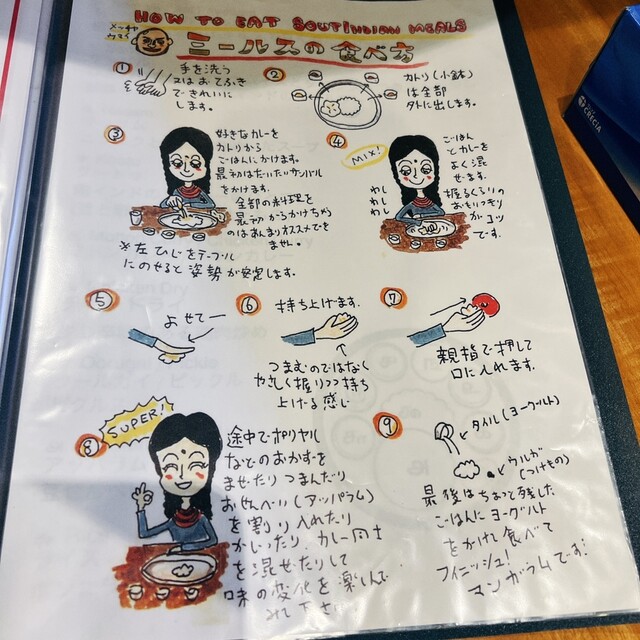 HOW TO EAT SOUTINDIAN MEALS
ミールスの食べ方
①
手を洗う
又はおてふき
できれいに
します。
②
カトリ(小鉢)
は全部
外に出します。
③
好きなカレーを
カトリから
ごはんにかけます。
最初はだいたいサンバル
をかけます。
全部の料理を
最初からかけちゃう
のはあんまりオススメできま
ません。
※左ひじをテーブル
にのせると姿勢が安定します。
④
MIX!
わし
わし
わし
ごはん
とカレーを
よく混
ぜます。
握るくらいの
おもいっきり
がコツ
です。
⑤
よせてー
⑥
持ち上げます。
つまむのではなく
やさしく握りつつ持ち
上げる感じ
⑦
親指で押して
口に入れます。
⑧
SUPER!
途中でポリヤル
などのおかずを
まぜたりつまんだり
おせんべい(アッパラム)
を割り入れたり
かじったりカレー同士
を混ぜたりして
味の変化を楽しんで
みて下さい
⑨
タイル(ヨーグルト)
ウルガ
(つけもの)
最後はちょっと残した
ごはんにヨーグルト
をかけて食べて
フィニッシュ!
マンガラムです!
CECIA